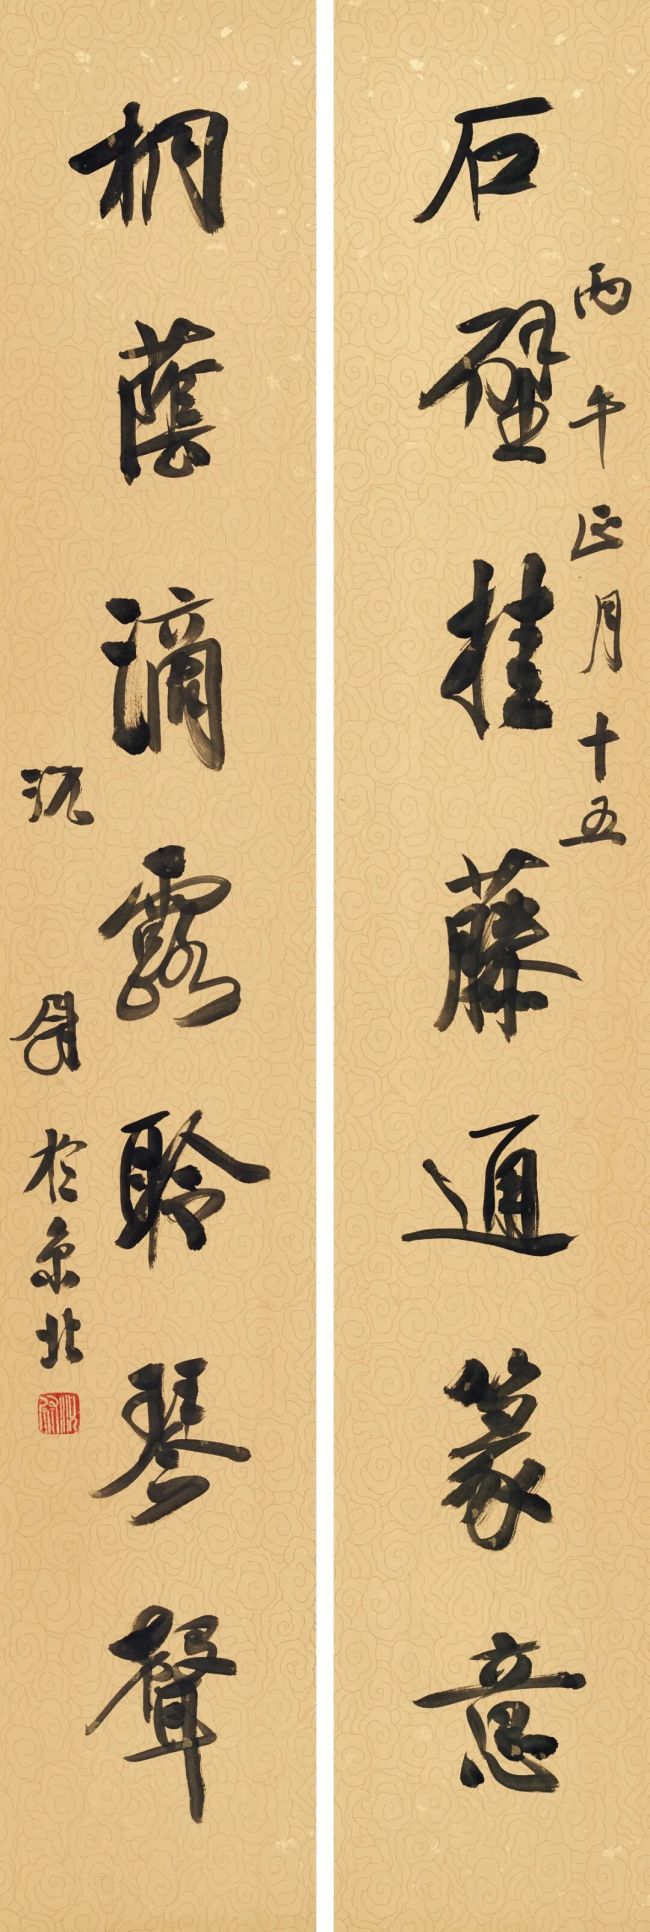 石壁挂藤通篆意
丙午正月十五
桐蔭滴露聆琴聲
於京北